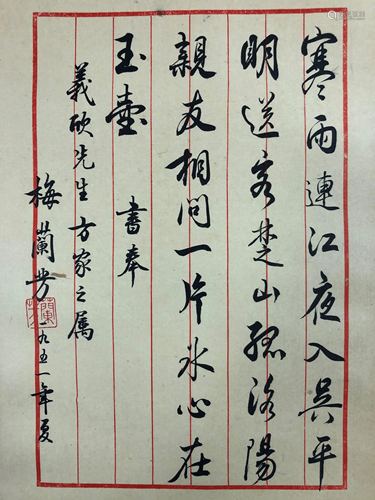 寒雨連江夜入吳平
明送客楚山孤洛陽
親友相問一片氷心在
玉壺 書奉
義砍先生方家之属
梅蘭芳 一九五一年夏